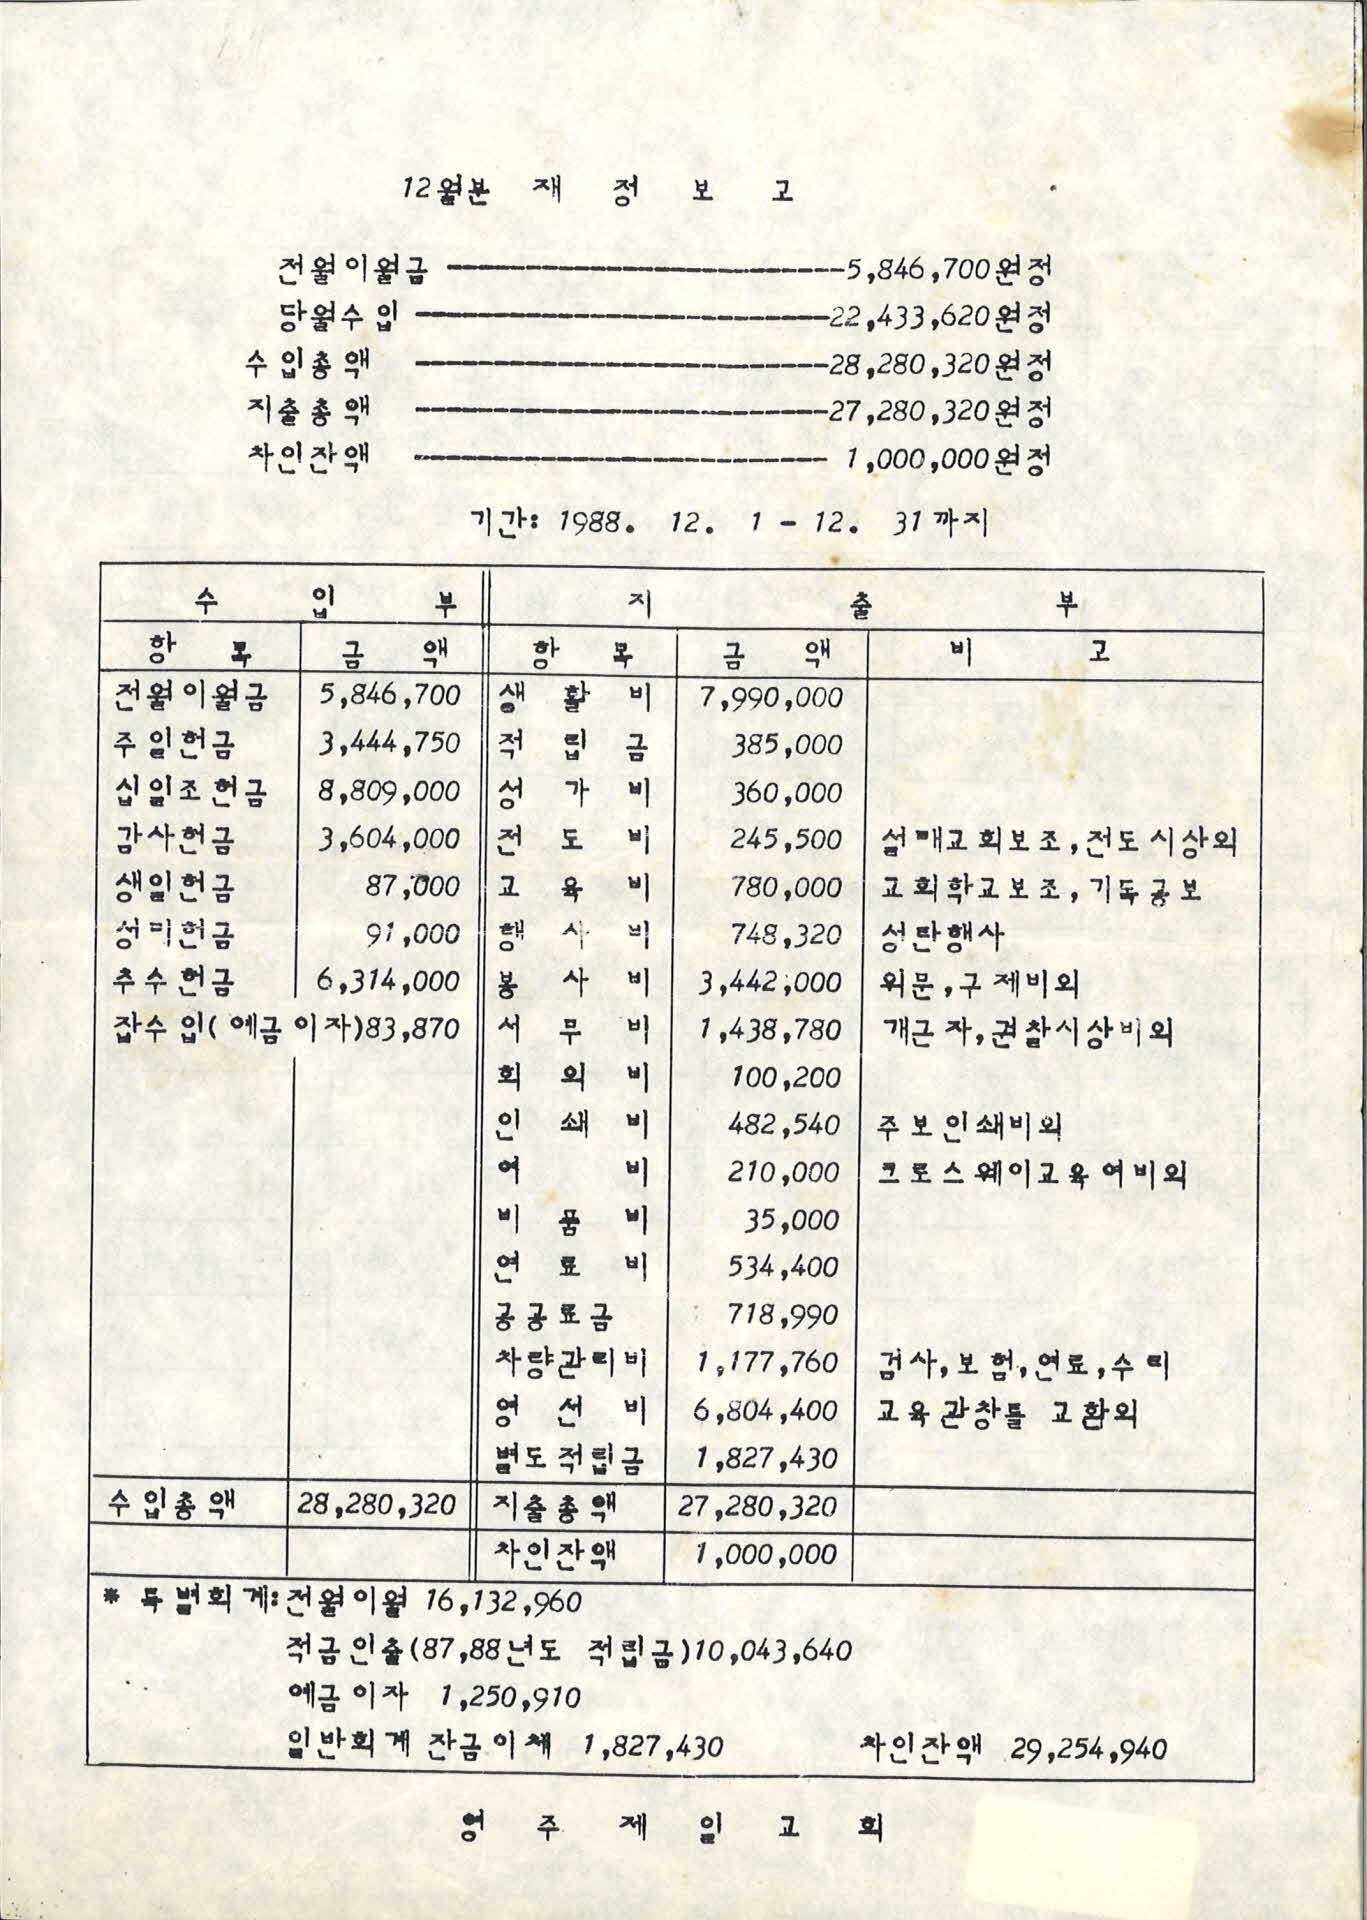 12월분 재 정 보 고
전월이월금 ------------------------5,846,700원정
당월수입 -------------------------22,433,620원정
수입총액 -------------------------28,280,320원정
지출총액 -------------------------27,280,320원정
차인잔액 ------------------------- 1,000,000원정
기간: 1988. 12. 1 - 12. 31까지
수 입 부 지 출 부
항 목 금 액 항 목 금 액 비 고
전월이월금 5,846,700 생 활 비 7,990,000
주일헌금 3,444,750 적 립 금 385,000
십일조헌금 8,809,000 성 가 비 360,000
감사헌금 3,604,000 전 도 비 245,500 설매교회보조,전도시상외
생일헌금 87,000 교 육 비 780,000 교회학교보조,기독공보
성미헌금 91,000 행 사 비 748,320 성탄행사
추수헌금 6,314,000 봉 사 비 3,442,000 위문,구제비외
잡수입(예금이자)83,870 서 무 비 1,438,780 개근자,권찰시상비외
회 의 비 100,200
인 쇄 비 482,540 주보인쇄비외
여 비 210,000 크로스웨이교육여비외
비 품 비 35,000
연 료 비 534,400
공공료금 718,990
차량관리비 1,177,760 검사,보험,연료,수리
영 선 비 6,804,400 교육관창틀 교환외
별도적립금 1,827,430
수입총액 28,280,320 지출총액 27,280,320
차인잔액 1,000,000
* 특별회계:전월이월 16,132,960
적금인출(87,88년도 적립금)10,043,640
예금이자 1,250,910
일반회계 잔금이체 1,827,430 차인잔액 29,254,940
영 주 제 일 교 회